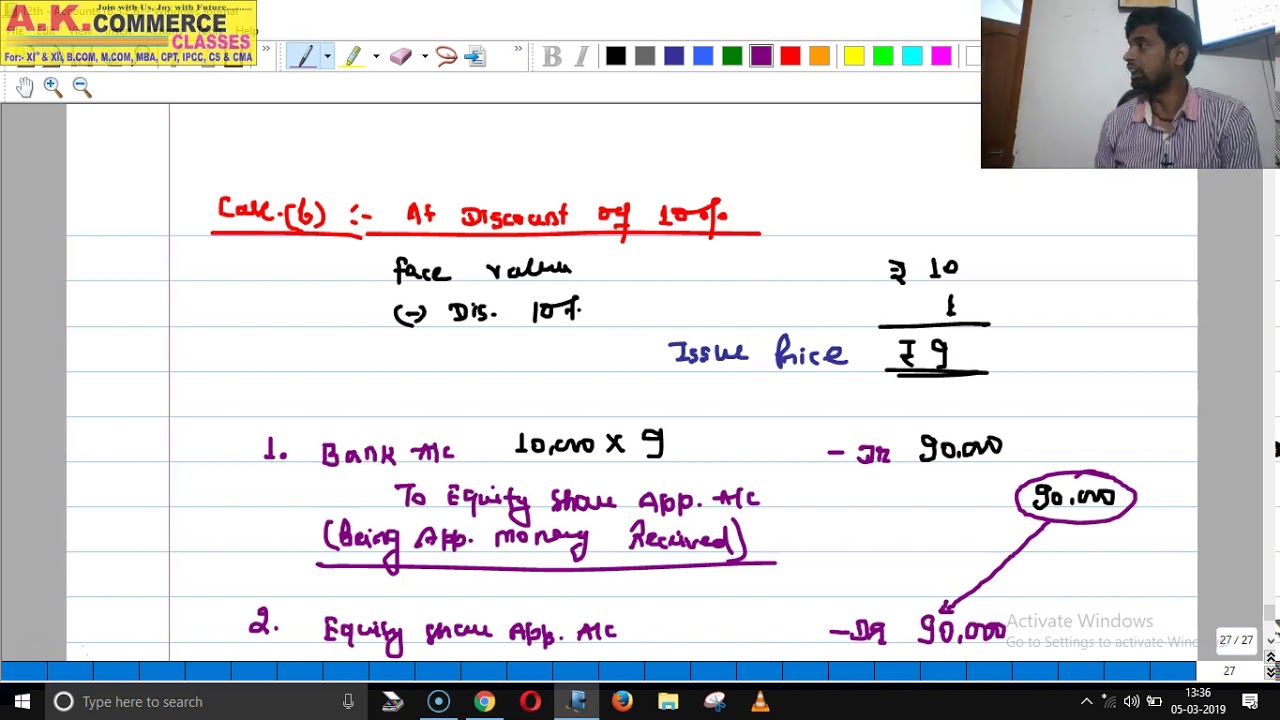 Join with Us, Joy with Future
A.K. COMMERCE
CLASSES
For:- XIᵗʰ & XIIᵗʰ, B.COM, M.COM, MBA, CPT, IPCC, CS & CMA
Help
B I
Case.(b) :- At Discount of 10%
Face value ₹ 10
(-) Dis. 10% 1
Issue Price ₹ 9
1. Bank A/c 10,000 x 9 - Dr 90,000
To Equity Share App. A/c 90,000
(Being App. money Received)
2. Equity Share App. A/c - Dr 90,000
Activate Windows
Go to Settings to activate Windows.
27 / 27
27
Type here to search
13:36
05-03-2019